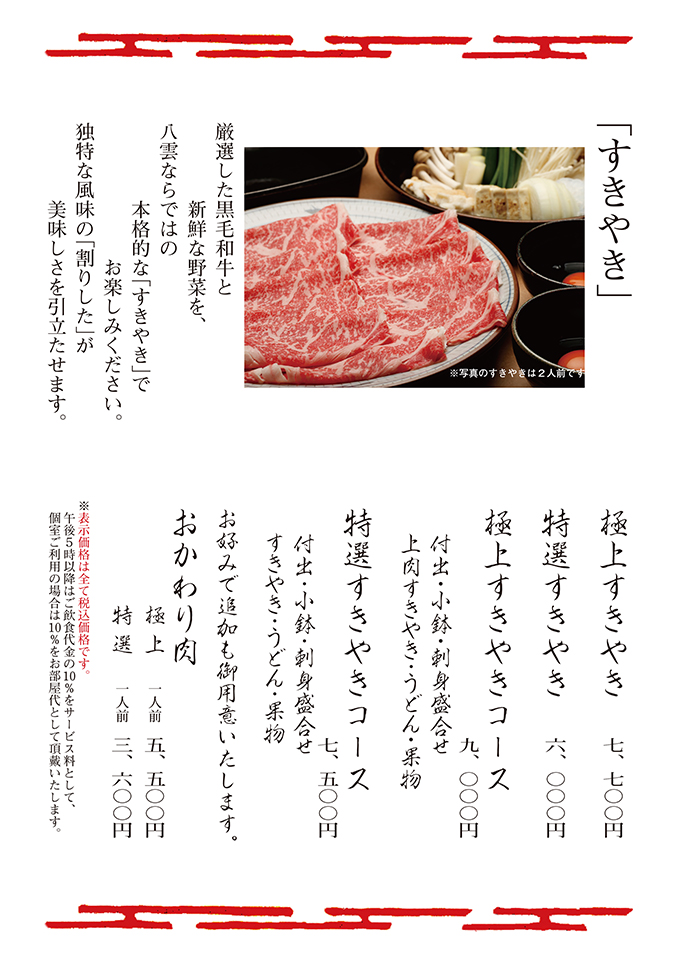 「すきやき」
※写真のすきやきは２人前です
厳選した黒毛和牛と
新鮮な野菜を、
八雲ならではの
本格的な「すきやき」で
お楽しみください。
独特な風味の「割りした」が
美味しさを引立たせます。
極上すきやき 七、七〇〇円
特選すきやき 六、〇〇〇円
極上すきやきコース
九、〇〇〇円
付出・小鉢・刺身盛合せ
上肉すきやき・うどん・果物
特選すきやきコース
七、五〇〇円
付出・小鉢・刺身盛合せ
すきやき・うどん・果物
お好みで追加も御用意いたします。
おかわり肉
極上 一人前 五、五〇〇円
特選 一人前 三、六〇〇円
※表示価格は全て税込価格です。
午後５時以降はご飲食代金の10％をサービス料として、
個室ご利用の場合は10％をお部屋代として頂戴いたします。